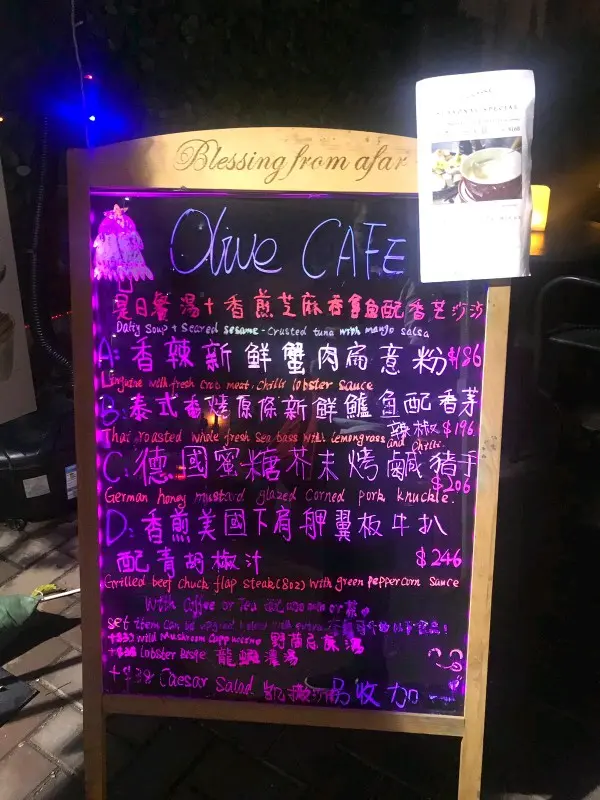 Blessing from afar
Olive CAFE
是日餐湯+香煎芝麻吞拿魚配香芒沙沙
Daily Soup + Seared sesame-crusted tuna with mango salsa
A:香辣新鮮蟹肉扁意粉$186
Linguine with fresh crab meat, chilli lobster sauce
B:泰式香烤原條新鮮鱸魚配香茅
辣椒 $196
Thai roasted whole fresh sea bass with lemongrass and chilli.
C:德國蜜糖芥末烤鹹豬手
$206
German honey mustard glazed corned pork knuckle.
D:香煎美國下肩胛翼板牛扒
配青胡椒汁 $246
Grilled beef chuck flap steak (8oz) with green peppercorn sauce
With Coffee or Tea
set item can be upgrad
wild Mushroom Cappuccino 野菌
Lobster Bisque 龍蝦濃湯
+$38 Caesar Salad 另收加一